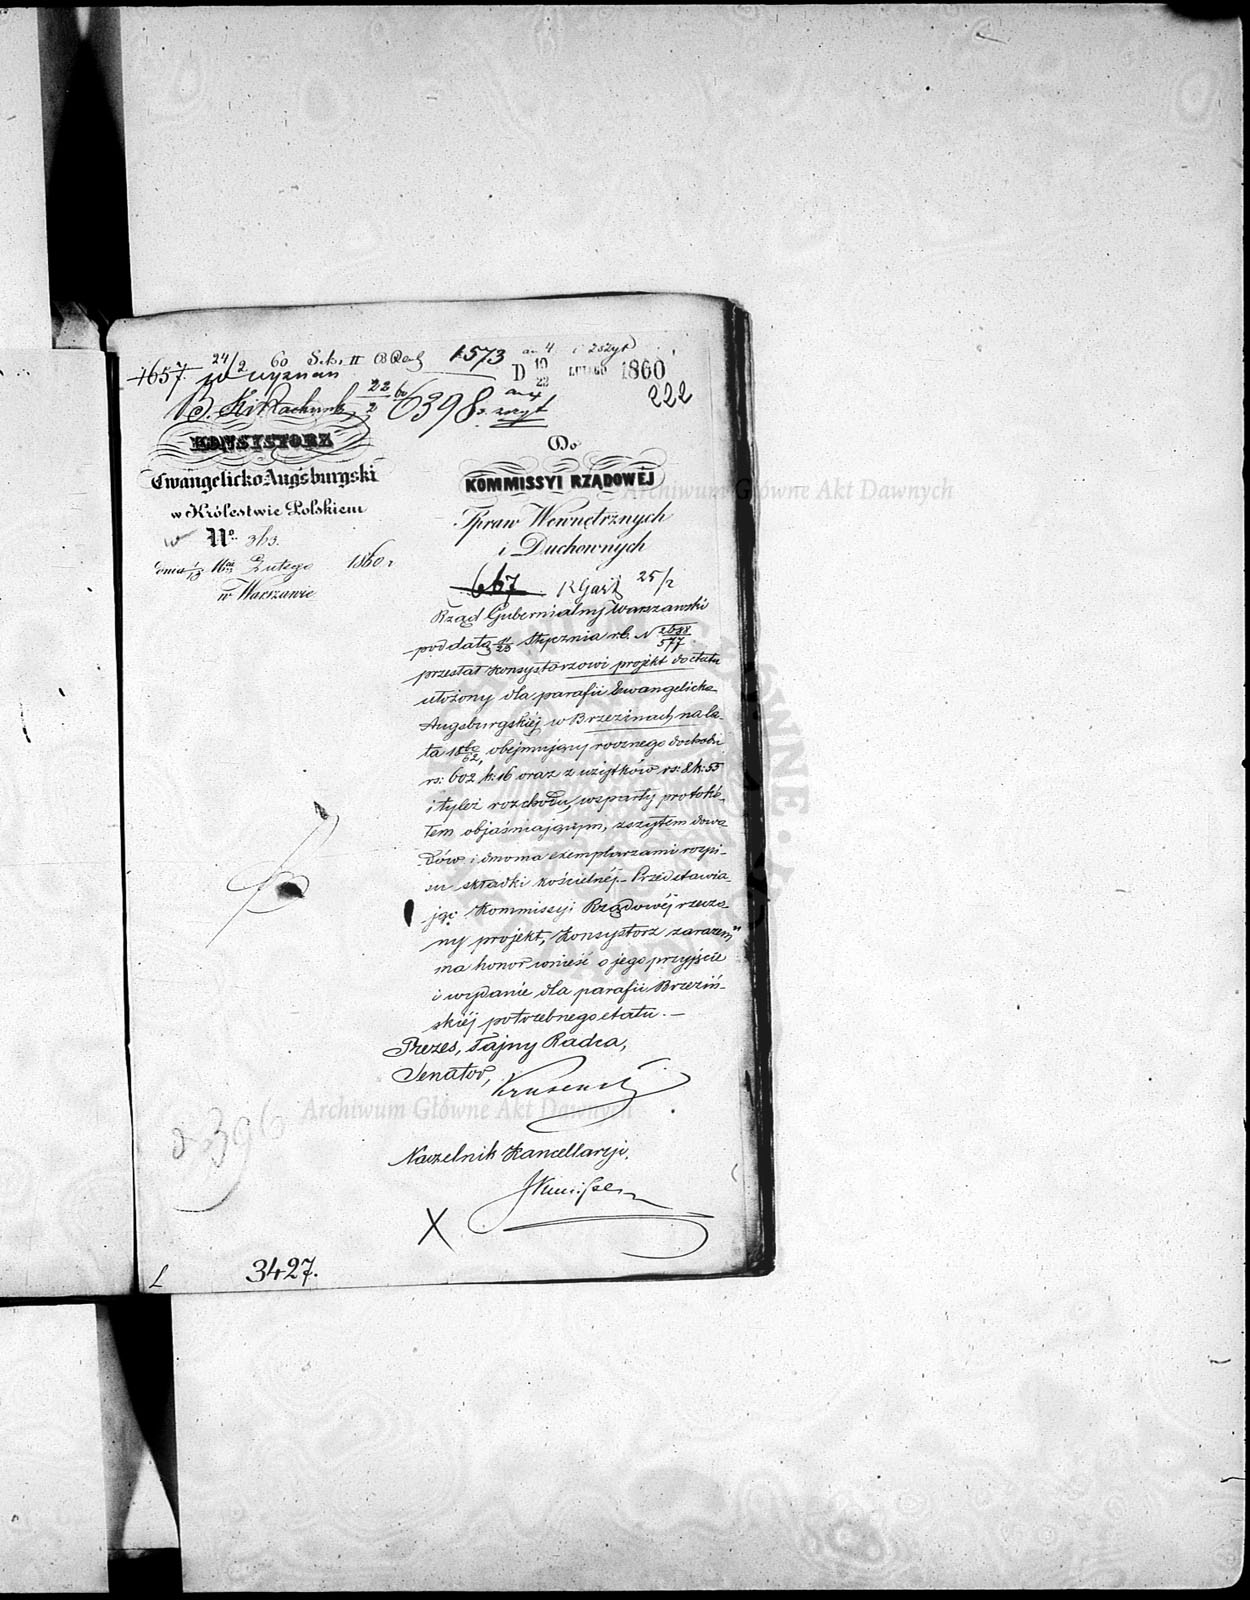 1657. 24/2 60 1573 an 4 i zszyt
wyznań D 10/22 LUTEGO 1860
222
22/2 60 6398 an 4 zszyt
KONSYSTORZ
Ewangelicko-Augsburgski
w Królestwie Polskiem
No 363.
dnia Lutego 1860 r
w Warszawie
Do
KOMMISSYI RZĄDOWEJ
Spraw Wewnętrznych
i Duchownych
667 25/2
Rząd Gubernialny Warszawski
pod datą 11/23 Stycznia r.b. N
przesłał Konsystorzowi projekt do etatu
ułożony dla parafii Ewangelicko
Augsburgskiéj w Brzezinach na la-
ta 1860/62, obejmujący rocznego dochodu
rs: 602 k: 16 oraz z użytków rs: 8 k: 55
i tyleż rozchodu, wsparty protokó-
łem objaśniającym, zszytem dowo-
dów i dwoma exemplarzami rozpi-
su składki kościelnéj.- Przedstawia-
jąc Kommissyi Rządowéj rzeczo-
ny projekt, Konsystorz zarazem
ma honor wnieść o jego przyjęcie
i wydanie dla parafii Brzeziń-
skiéj potrzebnego etatu.-
Prezes, Tajny Radca,
Senator,
Naczelnik Kancellaryi,
X
3427.
Archiwum Główne Akt Dawnych
Archiwum Główne Akt Dawnych